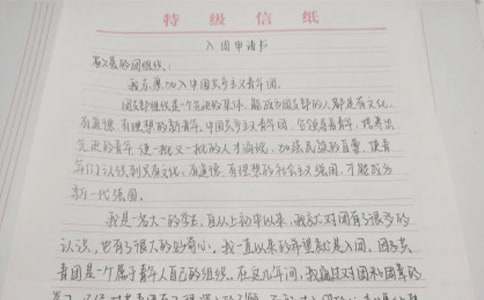 特级信纸
入团申请书
敬爱的团组织：
我志愿加入中国共产主义青年团。
团支部组织是一个先进的集体，能成为团支部的人都是有文化、
有道德、有理想的新青年。中国共产主义青年团，它领导着青年，培养出
先进的青年，使一批又一批的人才涌现，加强民族的力量，使青
年们认识到只有文化、有道德、有理想的社会主义强国，才能成为
新一代强国。
我是一名大一的学生，自从上初中以来，我就对团有了很多的
认识，也有了很大的好奇心。我一直以来的希望就是入团。团是共
青团是一个属于青年人自己的组织。在这几年间，我通过对团和团章的